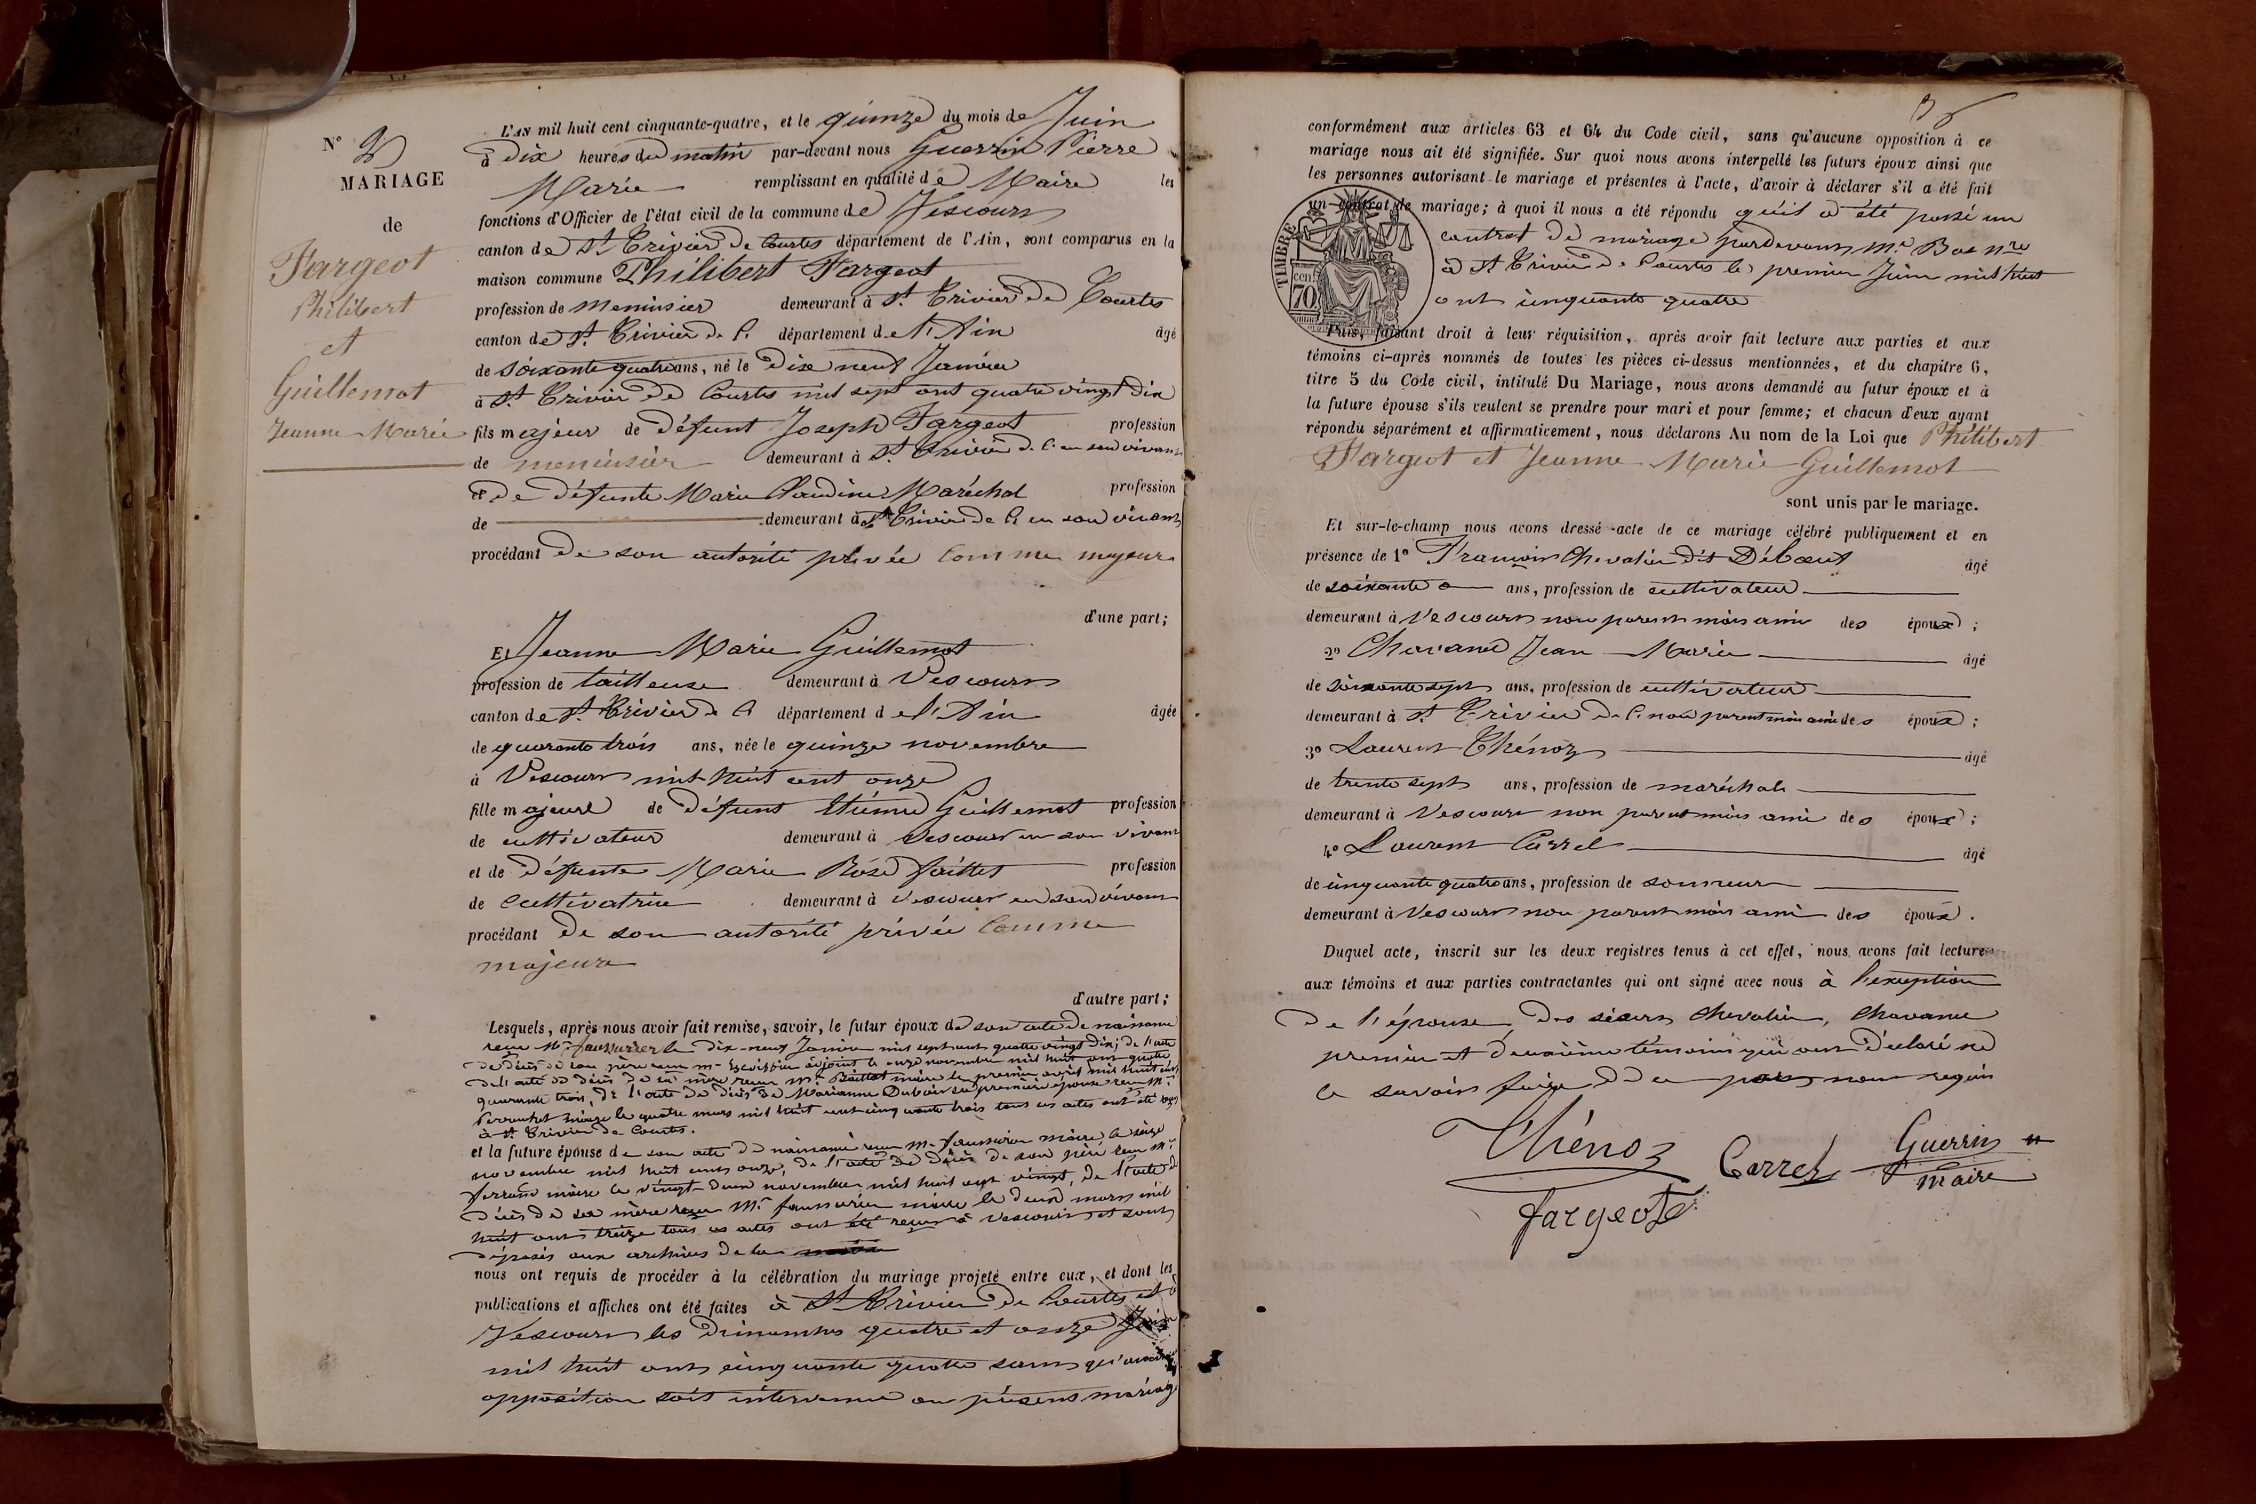 N° 3
MARIAGE
de
Fargeot
Philibert
et
Guillemot
Jeanne Marie
L'AN mil huit cent cinquante-quatre, et le quinze du mois de Juin
à dix heures du matin par-devant nous Guerrin Pierre
Marie remplissant en qualité de Maire les
fonctions d'Officier de l'état civil de la commune de Vescours
canton de St Trivier de Courtes département de l'Ain, sont comparus en la
maison commune Philibert Fargeot
profession de menuisier demeurant à St. Trivier de Courtes
canton de St. Trivier de C. département de l'Ain âgé
de soixante quatre ans, né le dix neuf Janvier
à St. Trivier de Courtes mil sept cent quatre vingt dix
fils majeur de défunt Joseph Fargeot profession
de menuisier demeurant à St. Trivier d. C. en son vivant
et de défunte Marie Claudine Maréchal profession
de demeurant à St Trivier de C. en son vivant
procédant de son autorité privée comme majeur
d'une part;
Et Jeanne Marie Guillemot
profession de tailleuse demeurant à Vescours
canton de St. Trivier de C. département de l'Ain âgée
de quarante trois ans, née le quinze novembre
à Vescours mil huit cent onze
fille majeure de défunt Etienne Guillemot profession
de cultivateur demeurant à Vescours en son vivant
et de défunte Marie Rose faillet profession
de cultivatrice demeurant à Vescours en son vivant
procédant de son autorité privée comme
majeure
d'autre part;
Lesquels, après nous avoir fait remise, savoir, le futur époux de son acte de naissance
reçu Mr. faussurier le dix-neuf Janvier mil sept cent quatre vingt dix; de l'acte
de décès de son père reçu mr adjoint le onze novembre mil huit cent quatre
de l'acte de décès de sa mère reçu Mr. maire le premier avril mil huit cent
quarante trois, de l'acte de décès de Marianne Dubois sa première épouse reçu Mr.
maire le quatre mars mil huit cent cinquante trois tous ces actes ont été reçus
à St. Trivier de Courtes.
et la future épouse de son acte de naissance reçu Mr faussurier maire le seize
novembre mil huit cent onze, de l'acte de décès de son père reçu Mr.
ferrand maire le vingt-deux novembre mil huit cent vingt, de l'acte de
décès de sa mère reçu Mr. faussurier maire le deux mars mil
huit cent treize tous ces actes ont été reçus à Vescours et sont
déposés aux archives de la
nous ont requis de procéder à la célébration du mariage projeté entre eux, et dont les
publications et affiches ont été faites à St Trivier de Courtes et à
Vescours les dimanches quatre et onze Juin
mil huit cent cinquante quatre sans qu'aucune
opposition soit intervenue au présent mariage
conformément aux articles 63 et 64 du Code civil, sans qu'aucune opposition à ce
mariage nous ait été signifiée. Sur quoi nous avons interpellé les futurs époux ainsi que
les personnes autorisant le mariage et présentes à l'acte, d'avoir à déclarer s'il a été fait
un contrat de mariage; à quoi il nous a été répondu qu'il a été passé un
contrat de mariage pardevant Me Bos nre
à St Trivier de Courtes le premier Juin mil huit
cent cinquante quatre
TIMBRE
cen
70
Puis, faisant droit à leur réquisition, après avoir fait lecture aux parties et aux
témoins ci-après nommés de toutes les pièces ci-dessus mentionnées, et du chapitre 6,
titre 5 du Code civil, intitulé Du Mariage, nous avons demandé au futur époux et à
la future épouse s'ils veulent se prendre pour mari et pour femme; et chacun d'eux ayant
répondu séparément et affirmativement, nous déclarons Au nom de la Loi que Philibert
Fargeot et Jeanne Marie Guillemot
sont unis par le mariage.
Et sur-le-champ nous avons dressé acte de ce mariage célébré publiquement et en
présence de 1° François Chevalier dit Débœuf âgé
de soixante ans, profession de cultivateur
demeurant à Vescours non parent mais ami des époux;
2° Chavand Jean Marie âgé
de soixante sept ans, profession de cultivateur
demeurant à St. Trivier de C. non parent mais ami des époux;
3° Laurent Thénoz âgé
de trente sept ans, profession de maréchal
demeurant à Vescours non parent mais ami des époux;
4° Laurent Carrel âgé
de cinquante quatre ans, profession de sonneur
demeurant à Vescours non parent mais ami des époux.
Duquel acte, inscrit sur les deux registres tenus à cet effet, nous avons fait lecture
aux témoins et aux parties contractantes qui ont signé avec nous à l'exception
de l'épouse des sieurs Chevalier, Chavand
premier et deuxième témoins qui ont déclaré ne
le savoir faire de ce par nous requis
Thénoz Carrel Guerrin
Maire
fargeot